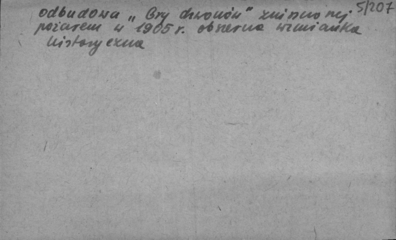 odbudowa „Gry dzwonów" zniszczonej 5/207
pożarem w 1905 r. obszerna wzmianka
historyczna